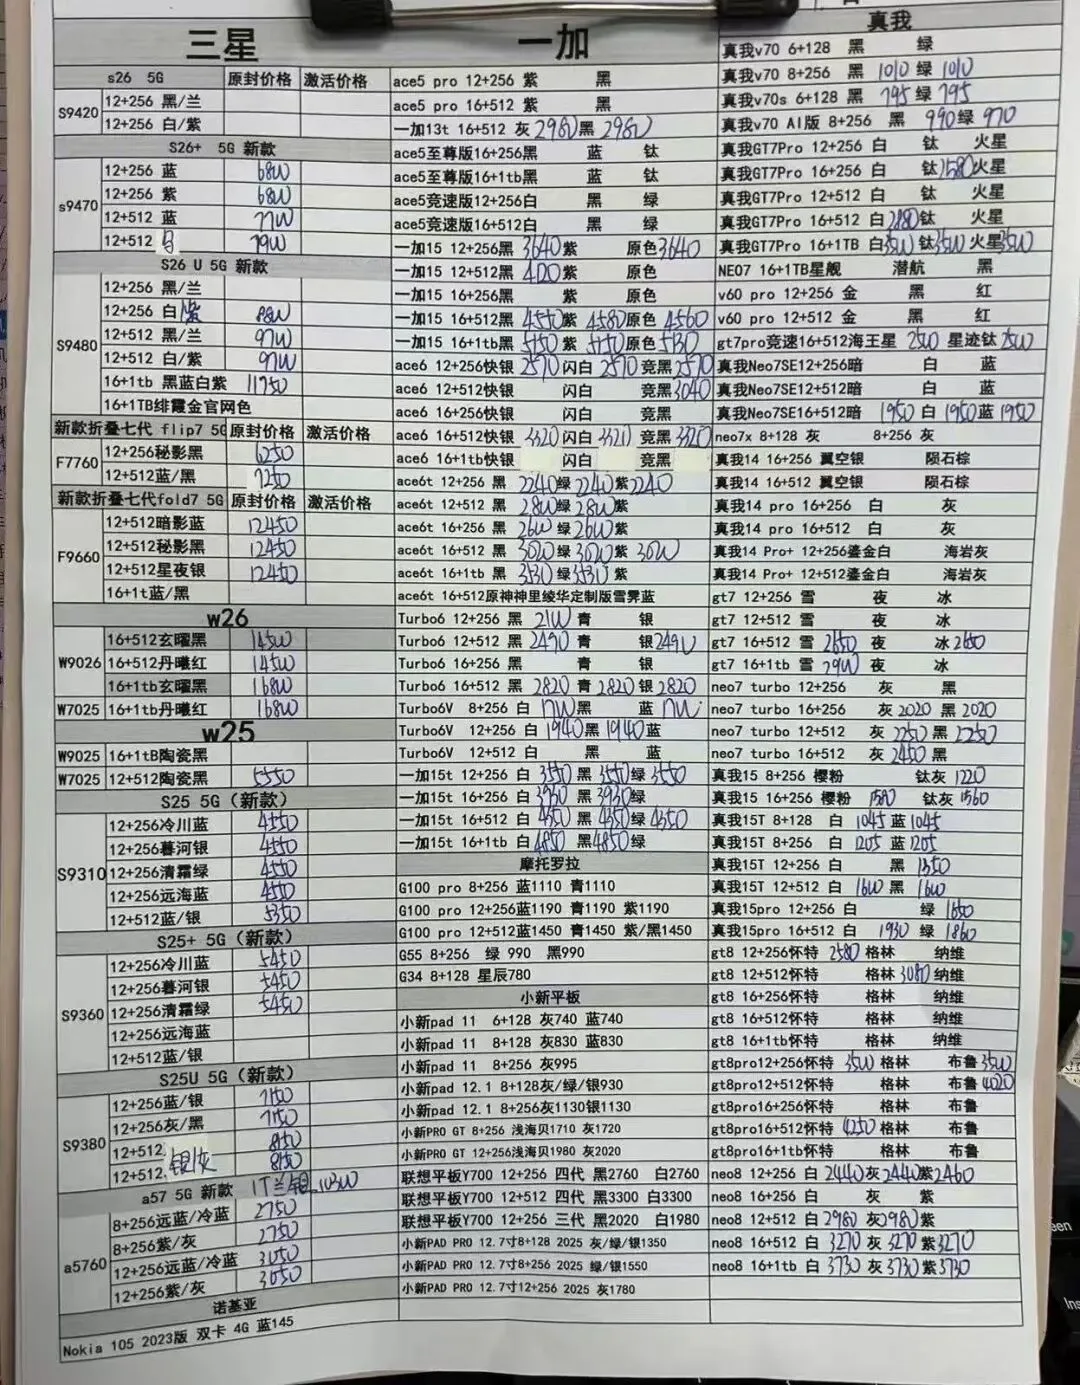 三星
s26 5G 原封价格 激活价格
S9420
12+256 黑/兰
12+256 白/紫
S26+ 5G 新款
s9470
12+256 蓝 6800
12+256 紫 6800
12+512 蓝 7700
12+512 7900
S26 U 5G 新款
S9480
12+256 黑/兰
12+256 白/紫 8800
12+512 黑/兰 9700
12+512 白/紫 9700
16+1tb 黑蓝白紫 11750
16+1TB绯霞金官网色
新款折叠七代 flip7 5G 原封价格 激活价格
F7760
12+256秘影黑 6250
12+512蓝/黑 7250
新款折叠七代fold7 5G 原封价格 激活价格
F9660
12+512暗影蓝 12450
12+512秘影黑 12450
12+512星夜银 12450
16+1t蓝/黑
w26
W9026
16+512玄曜黑 14500
16+512丹曦红 14500
16+1tb玄曜黑 16800
W7025 16+1tb丹曦红 16800
w25
W9025 16+1tB陶瓷黑
W7025 12+512陶瓷黑 5550
S25 5G（新款）
S9310
12+256冷川蓝 4550
12+256暮河银 4550
12+256清霜绿 4550
12+256远海蓝 4550
12+512蓝/银 5350
S25+ 5G（新款）
S9360
12+256冷川蓝 5450
12+256暮河银 5450
12+256清霜绿 5450
12+256远海蓝
12+512蓝/银
S25U 5G（新款）
S9380
12+256蓝/银 7150
12+256灰/黑 7150
12+512. 8150
12+512. 银/灰 8150
a57 5G 新款 1T兰银 10300
a5760
8+256远蓝/冷蓝 2750
8+256紫/灰 2750
12+256远蓝/冷蓝 3050
12+256紫/灰 3050
诺基亚
Nokia 105 2023版 双卡 4G 蓝145
一加
ace5 pro 12+256 紫 黑
ace5 pro 16+512 紫 黑
一加13t 16+512 灰 2980 黑 2980
ace5至尊版16+256黑 蓝 钛
ace5至尊版16+1tb黑 蓝 钛
ace5竞速版12+256白 黑 绿
ace5竞速版16+512白 黑 绿
一加15 12+256黑 3640 紫 原色 3640
一加15 12+512黑 4120 紫 原色
一加15 16+256黑 紫 原色
一加15 16+512黑 4550 紫 4580 原色 4560
一加15 16+1tb黑 5150 紫 5150 原色 5130
ace6 12+256快银 2570 闪白 2570 竞黑 2570
ace6 12+512快银 闪白 竞黑 3040
ace6 16+256快银 闪白 竞黑
ace6 16+512快银 3320 闪白 3320 竞黑 3320
ace6 16+1tb快银 闪白 竞黑
ace6t 12+256 黑 2240 绿 2240 紫 2240
ace6t 12+512 黑 2800 绿 2800 紫
ace6t 16+256 黑 2600 绿 2600 紫
ace6t 16+512 黑 3000 绿 3000 紫 3000
ace6t 16+1tb 黑 3530 绿 3530 紫
ace6t 16+512原神神里绫华定制版雪霁蓝
Turbo6 12+256 黑 2100 青 银
Turbo6 12+512 黑 2490 青 银 2490
Turbo6 16+256 黑 青 银
Turbo6 16+512 黑 2820 青 2820 银 2820
Turbo6V 8+256 白 1700 黑 蓝 1700
Turbo6V 12+256 白 1940 黑 1940 蓝
Turbo6V 12+512 白 黑 蓝
一加15t 12+256 白 3550 黑 3550 绿 3550
一加15t 16+256 白 3930 黑 3930 绿
一加15t 16+512 白 4350 黑 4350 绿 4350
一加15t 16+1tb 白 4850 黑 4850 绿
摩托罗拉
G100 pro 8+256 蓝1110 青1110
G100 pro 12+256蓝1190 青1190 紫1190
G100 pro 12+512蓝1450 青1450 紫/黑1450
G55 8+256 绿 990 黑990
G34 8+128 星辰780
小新平板
小新pad 11 6+128 灰740 蓝740
小新pad 11 8+128 灰830 蓝830
小新pad 11 8+256 灰995
小新pad 12.1 8+128灰/绿/银930
小新pad 12.1 8+256灰1130银1130
小新PRO GT 8+256 浅海贝1710 灰1720
小新PRO GT 12+256浅海贝1980 灰2020
联想平板Y700 12+256 四代 黑2760 白2760
联想平板Y700 12+512 四代 黑3300 白3300
联想平板Y700 12+256 三代 黑2020 白1980
小新PAD PRO 12.7寸8+128 2025 灰/绿/银1350
小新PAD PRO 12.7寸8+256 2025 绿/银1550
小新PAD PRO 12.7寸12+256 2025 灰1780
真我
真我v70 6+128 黑 绿
真我v70 8+256 黑 1010 绿 1010
真我v70s 6+128 黑 795 绿 795
真我v70 AI版 8+256 黑 990 绿 970
真我GT7Pro 12+256 白 钛 火星
真我GT7Pro 16+256 白 钛 2580 火星
真我GT7Pro 12+512 白 钛 火星
真我GT7Pro 16+512 白 2880 钛 火星
真我GT7Pro 16+1TB 白 3500 钛 3500 火星 3500
NEO7 16+1TB星舰 潜航 黑
v60 pro 12+256 金 黑 红
v60 pro 12+512 金 黑 红
gt7pro竞速16+512海王星 2500 星迹钛 2500
真我Neo7SE12+256暗 白 蓝
真我Neo7SE12+512暗 白 蓝
真我Neo7SE16+512暗 1950 白 1950 蓝 1950
neo7x 8+128 灰 8+256 灰
真我14 16+256 翼空银 陨石棕
真我14 16+512 翼空银 陨石棕
真我14 pro 16+256 白 灰
真我14 pro 16+512 白 灰
真我14 Pro+ 12+256鎏金白 海岩灰
真我14 Pro+ 12+512鎏金白 海岩灰
gt7 12+256 雪 夜 冰
gt7 12+512 雪 夜 冰
gt7 16+512 雪 2650 夜 冰 2650
gt7 16+1tb 雪 2900 夜 冰
neo7 turbo 12+256 灰 黑
neo7 turbo 16+256 灰 2020 黑 2020
neo7 turbo 12+512 灰 2250 黑 2250
neo7 turbo 16+512 灰 2450 黑
真我15 8+256 樱粉 钛灰 1220
真我15 16+256 樱粉 1580 钛灰 1560
真我15T 8+128 白 1045 蓝 1045
真我15T 8+256 白 1205 蓝 1205
真我15T 12+256 白 黑 1350
真我15T 12+512 白 1600 黑 1600
真我15pro 12+256 白 绿 1650
真我15pro 16+512 白 1930 绿 1860
gt8 12+256怀特 2580 格林 纳维
gt8 12+512怀特 格林 3080 纳维
gt8 16+256怀特 格林 纳维
gt8 16+512怀特 格林 纳维
gt8 16+1tb怀特 格林 纳维
gt8pro12+256怀特 3500 格林 布鲁 3500
gt8pro12+512怀特 格林 布鲁 4020
gt8pro16+256怀特 格林 布鲁
gt8pro16+512怀特 4250 格林 布鲁
gt8pro16+1tb怀特 格林 布鲁
neo8 12+256 白 2440 灰 2440 紫 2460
neo8 16+256 白 灰 紫
neo8 12+512 白 2980 灰 2980 紫
neo8 16+512 白 3270 灰 3270 紫 3270
neo8 16+1tb 白 3730 灰 3730 紫 3730